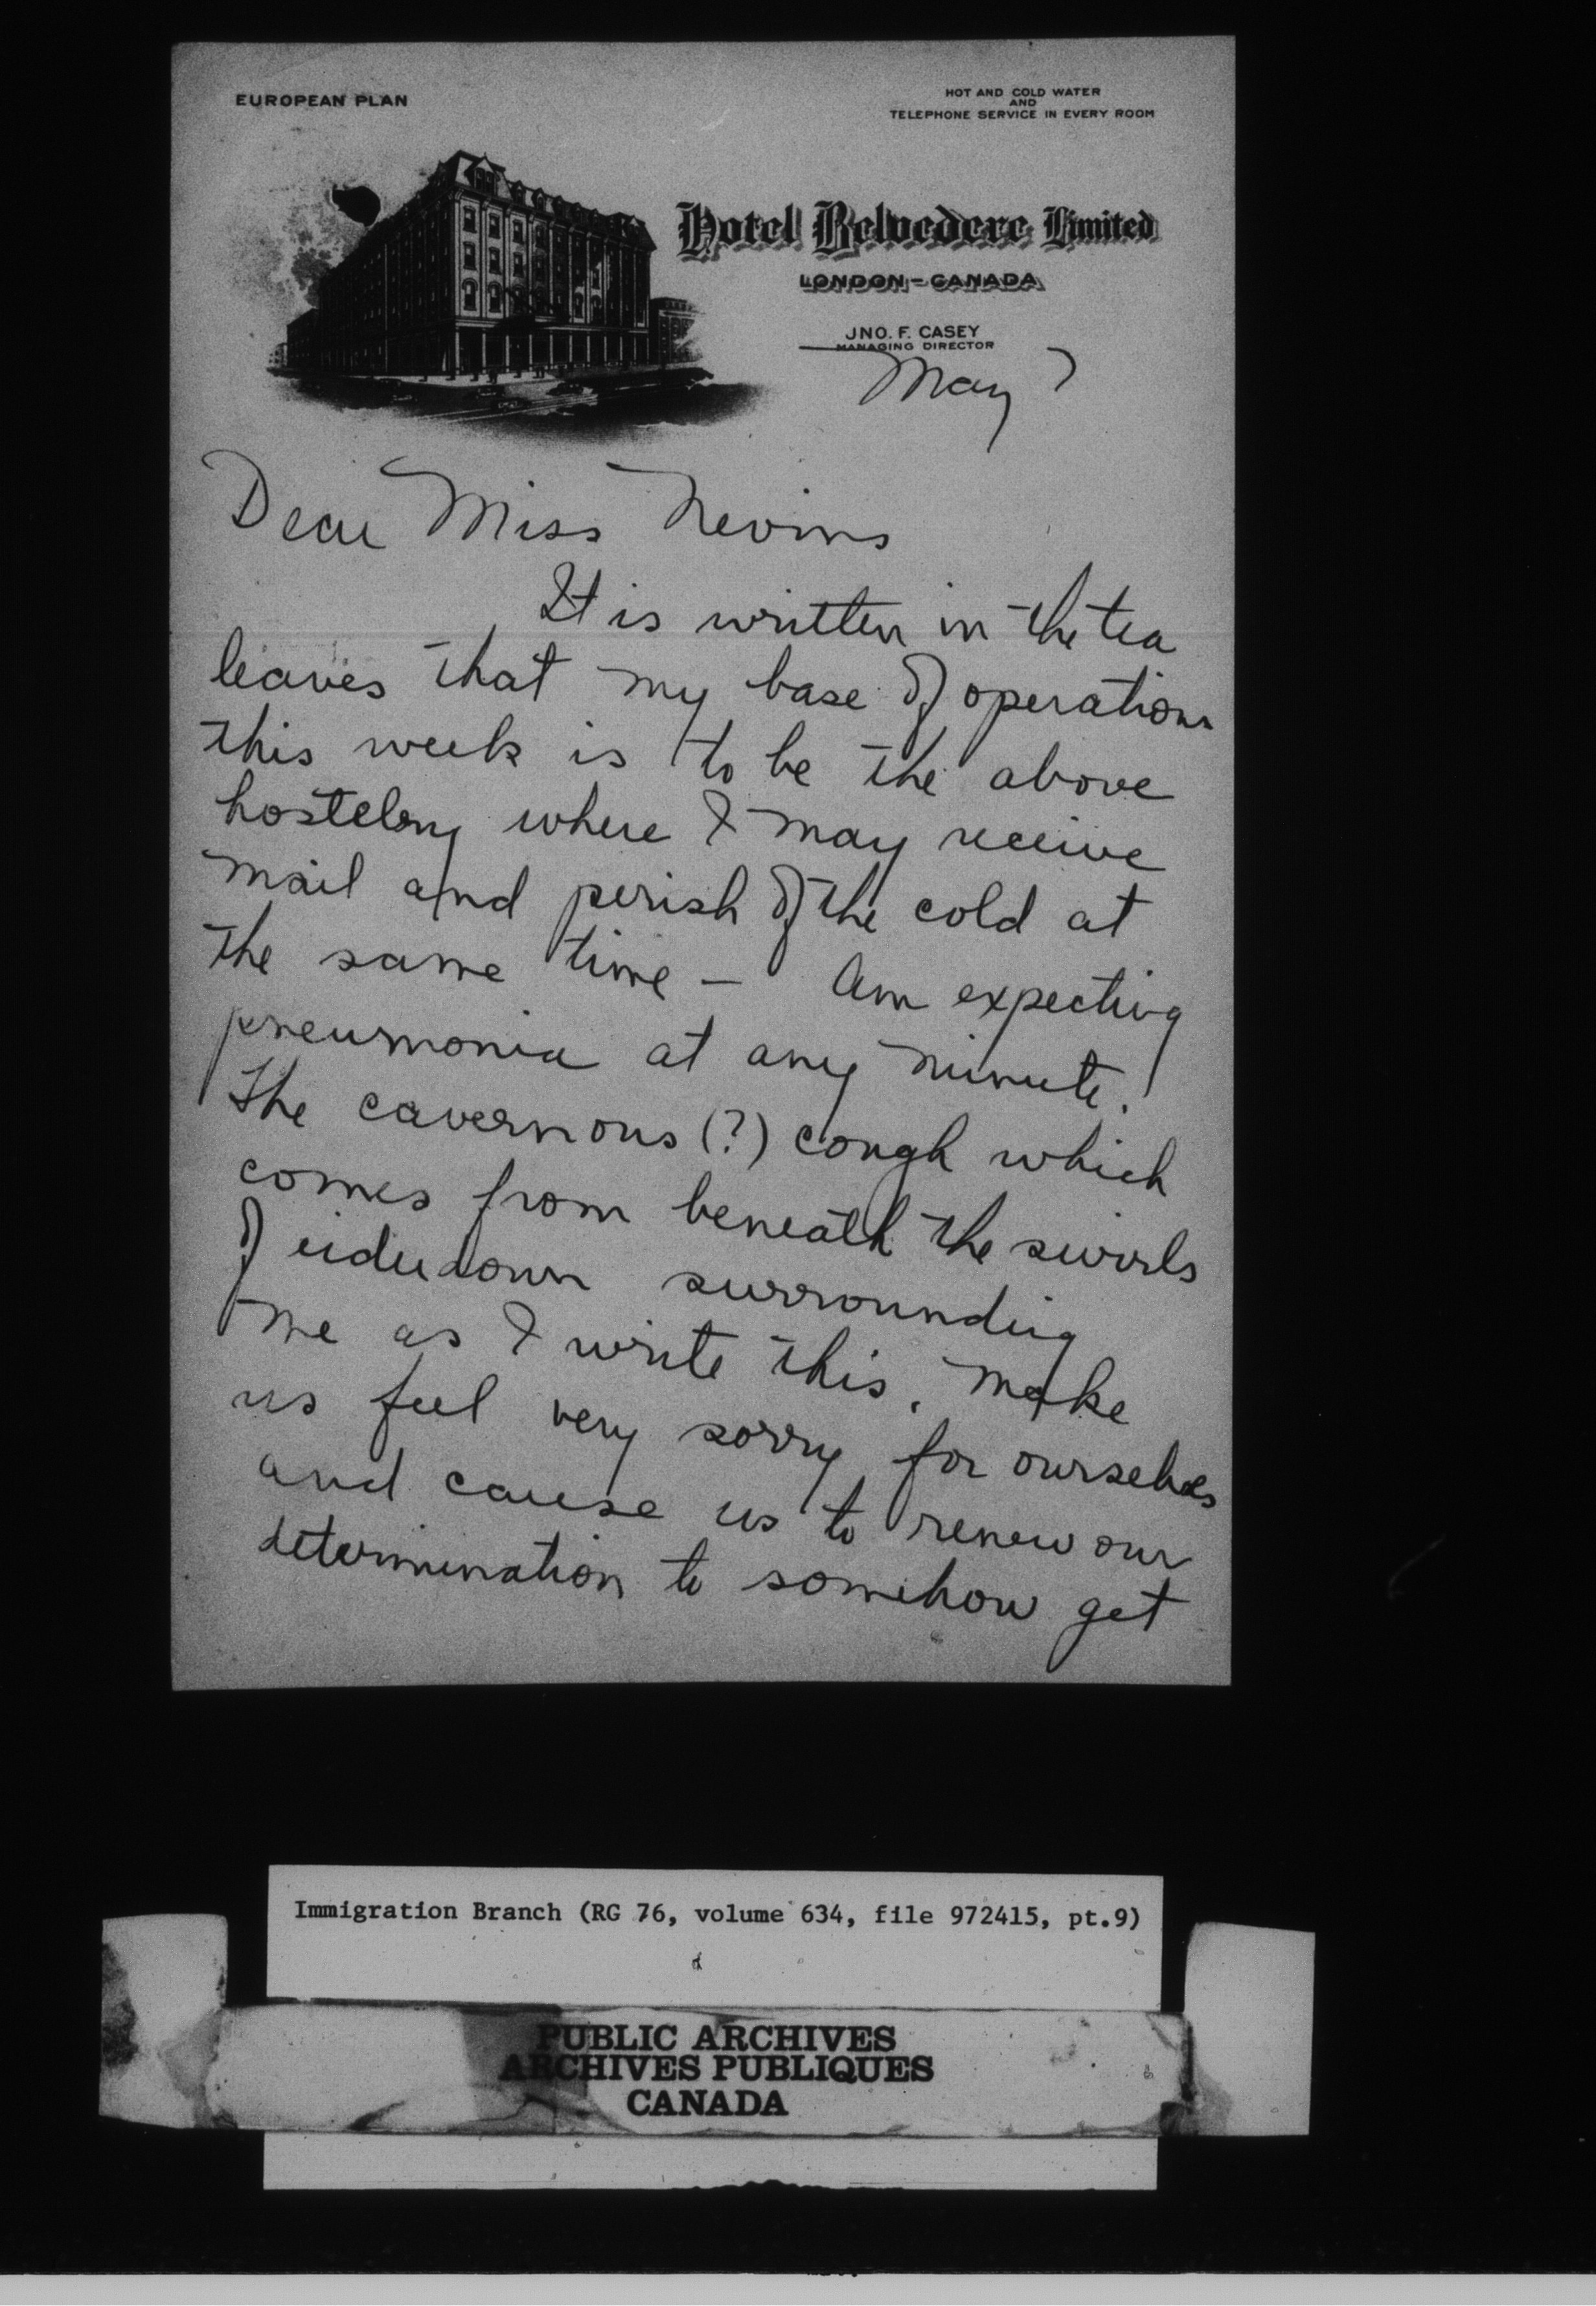 EUROPEAN PLAN
HOT AND COLD WATER
AND
TELEPHONE SERVICE IN EVERY ROOM
Hotel Belvedere Limited
LONDON - CANADA
JNO. F. CASEY
MANAGING DIRECTOR
May 7
Dear Miss Nevins
It is written in the tea
leaves that my base of operations
this week is to be the above
hostelery where I may receive
mail and perish of the cold at
the same time - Am expecting
pneumonia at any minute!
The cavernous (?) cough which
comes from beneath the swirls
of eiderdown surrounding
me as I write this, make
us feel very sorry for ourselves
and cause us to renew our
determination to somehow get
Immigration Branch (RG 76, volume 634, file 972415, pt.9)
PUBLIC ARCHIVES
ARCHIVES PUBLIQUES
CANADA